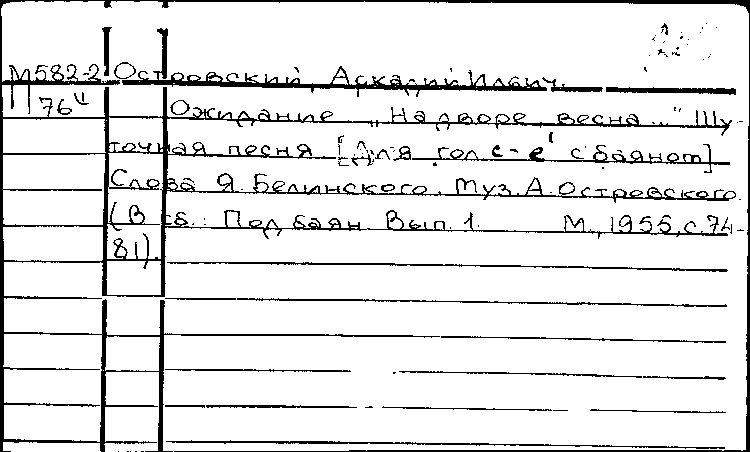 М582-2 Островский, Аркадий Ильич.
П 76 Ожидание „На дворе весна..." Шу-
точная песня [Для гол. c-e' с баяном]
Слова Я. Белинского. Муз. А. Островского.
(В сб.: Под баян. Вып. 1. М., 1955, с. 74-
81).